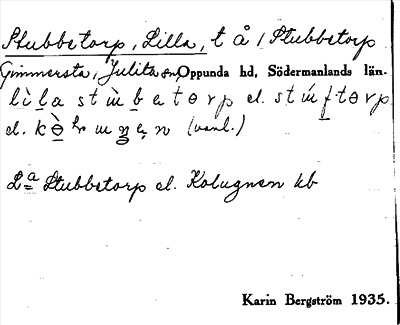 Stubbetorp, Lilla, t å / Stubbetorp
Gimmersta, Julita sn, Oppunda hd, Södermanlands län.
lìla stùbetorp el. stúftorp
el. kòlrungen (vanl.)
La Stubbetorp el. Kolugnen kb
Karin Bergström 1935.